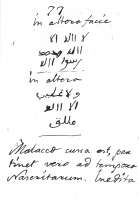 77
in altera facie
لا اله الا
الله محمد
رسول الله
in altera
ولا غالب
الا الله
Malacco cusa est, per
tinet vero ad tempora
Nasritarum. Inedita